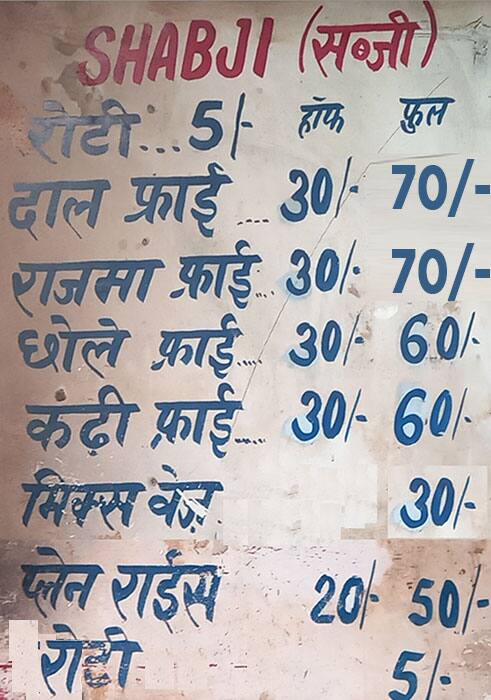 SHABJI (सब्जी)
रोटी...5/- हॉफ फुल
दाल फ्राई .... 30/- 70/-
राजमा फ्राई... 30/- 70/-
छोले फ्राई.... 30/- 60/-
कढ़ी फ्राई..... 30/- 60/-
मिक्स वेज 30/-
प्लेन राईस 20/- 50/-
रोटी 5/-